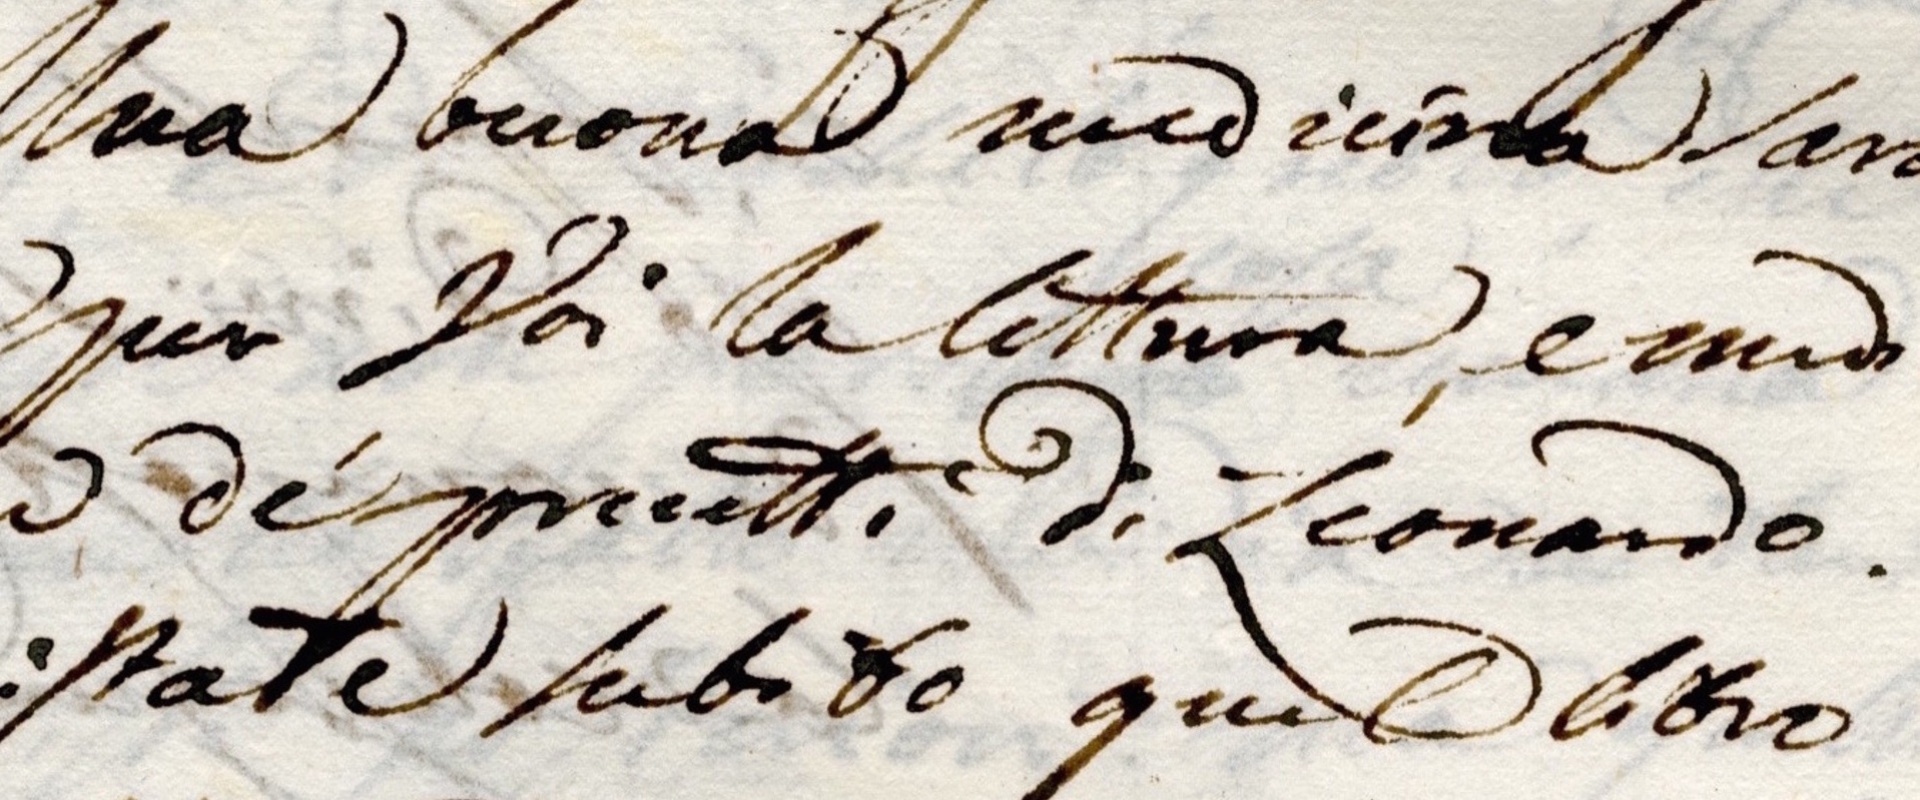 Una buona medicina sarà
per Voi la lettura, e med
o dé precetti di Leonardo.
istate subito quel libro